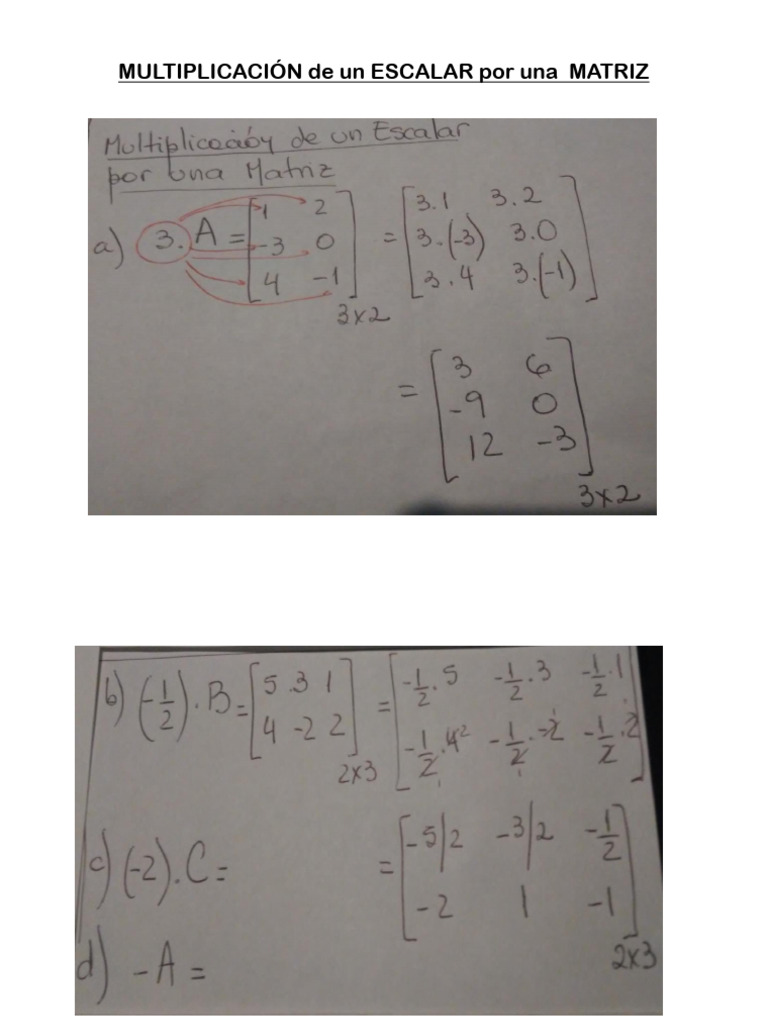 MULTIPLICACIÓN de un ESCALAR por una MATRIZ
Multiplicación de un Escalar
por una Matriz
a) 3. A = [1 2 = [3.1 3.2
-3 0 3.(-3) 3.0
4 -1] 3x2 3.4 3.(-1)]
= [3 6
-9 0
12 -3] 3x2
b) (-1/2) . B = [5 3 1 = [-1/2 . 5 -1/2 . 3 -1/2 . 1
4 -2 2] 2x3 -1/2 . 4 2 -1/2 . -2 1 -1/2 . 2 1]
= [-5/2 -3/2 -1/2
-2 1 -1] 2x3
c) (-2) . C =
d) -A =